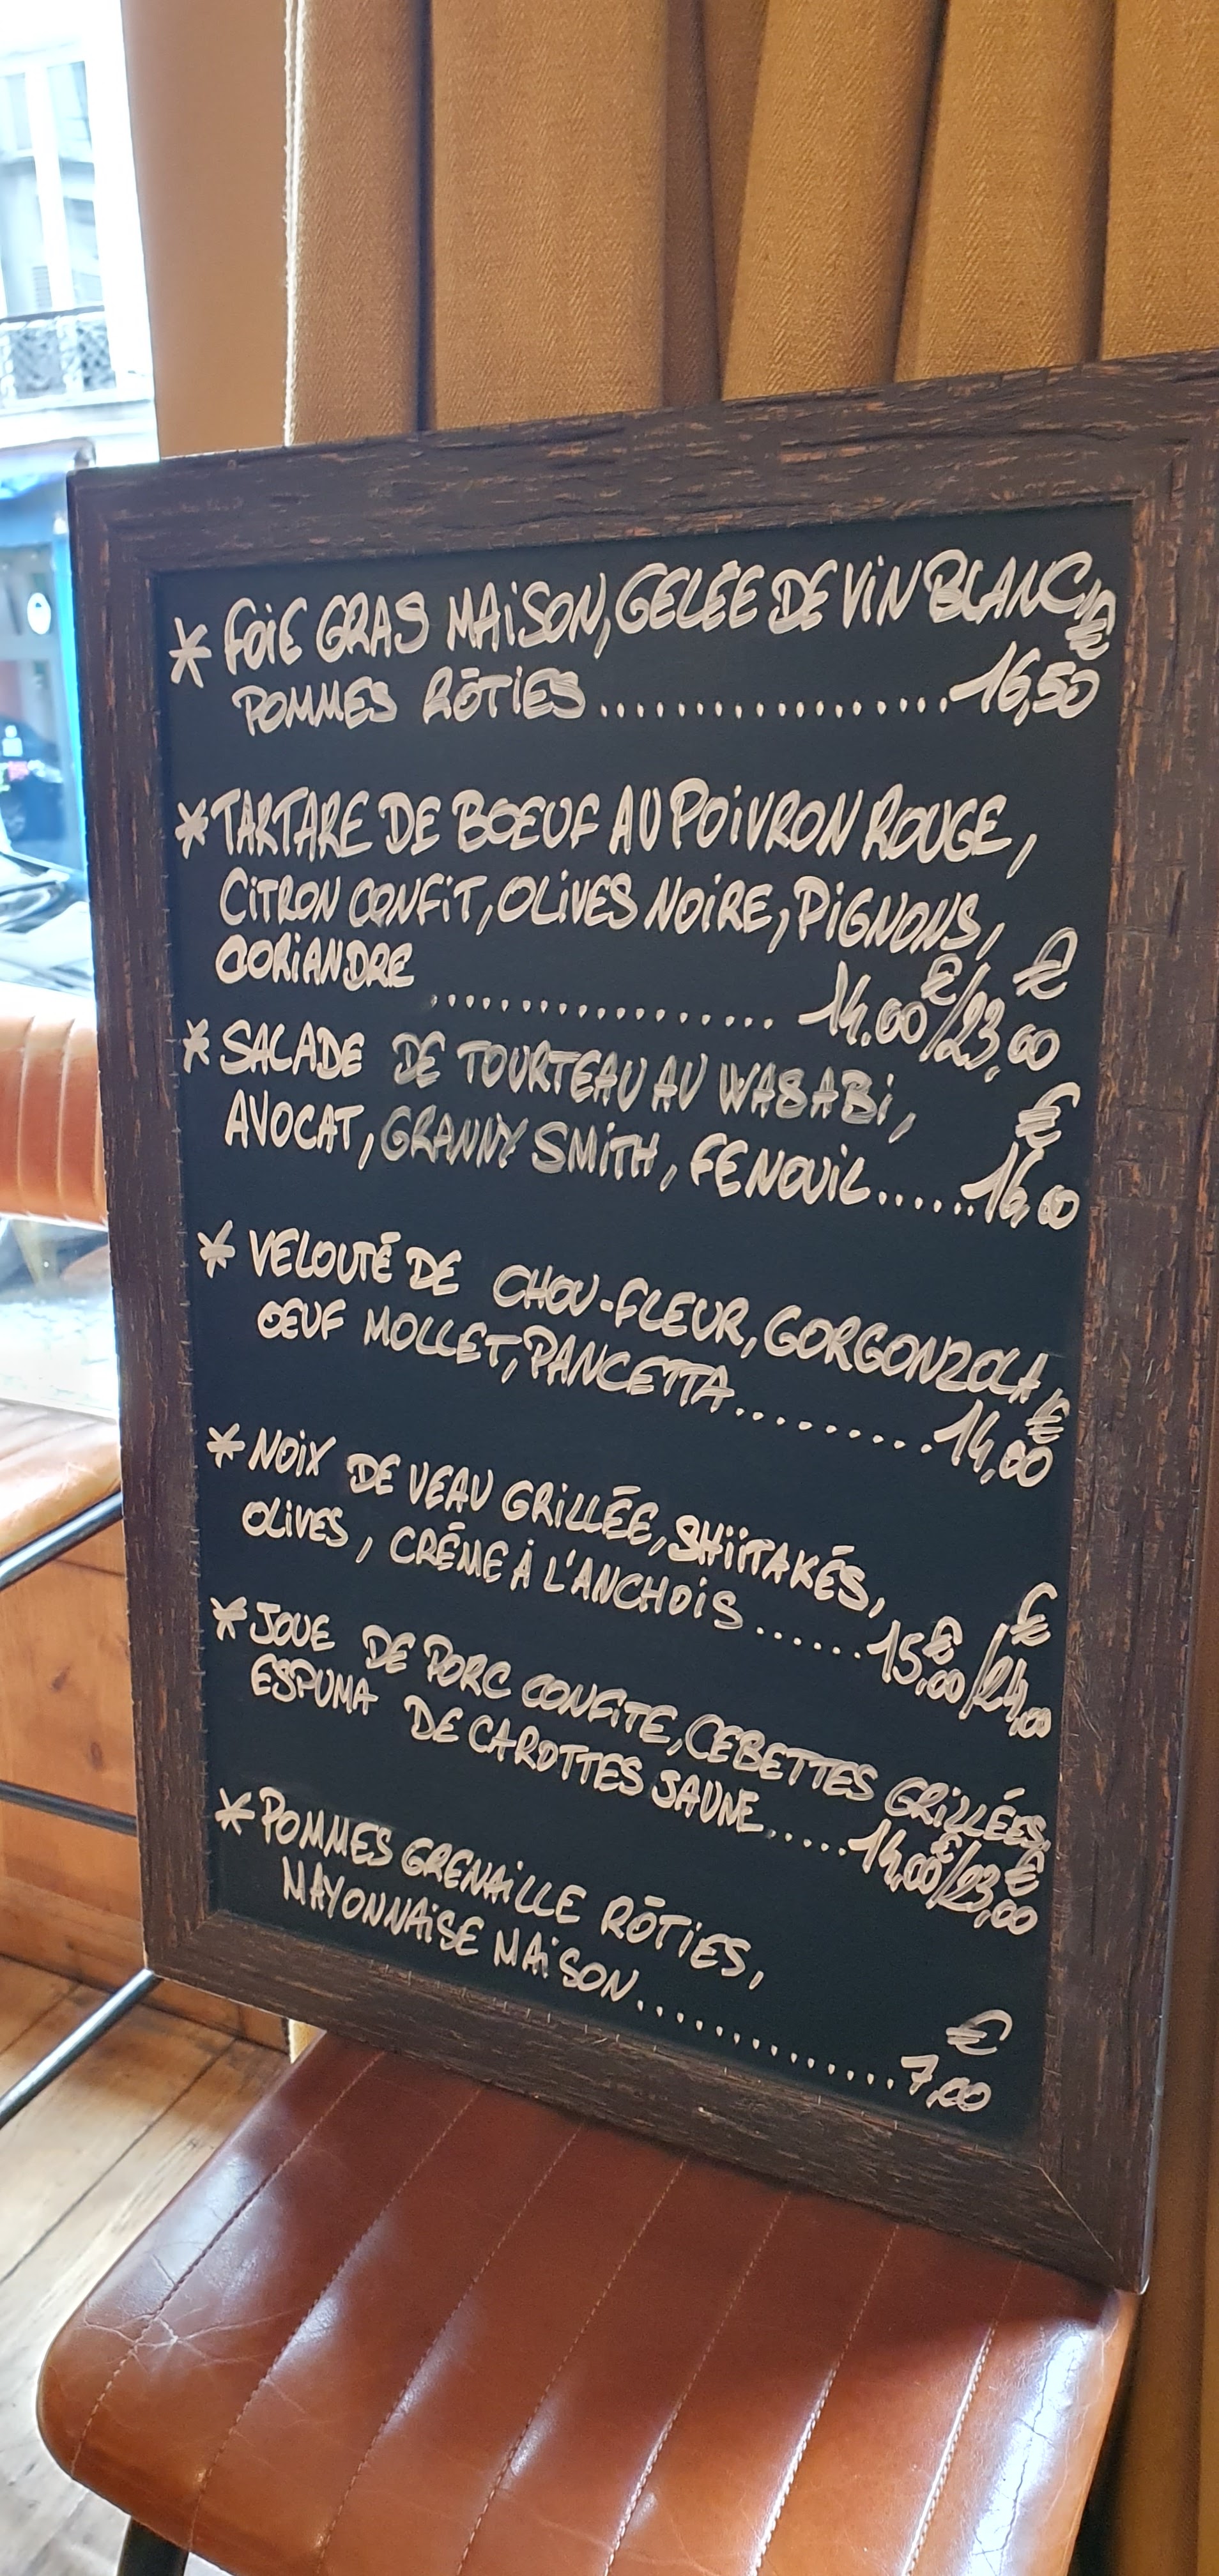 * FOIE GRAS MAISON, GELÉE DE VIN BLANC, €
POMMES RÔTIES.................16,50
* TARTARE DE BOEUF AU POIVRON ROUGE,
CITRON CONFIT, OLIVES NOIRE, PIGNONS,
CORIANDRE ................. 14.00€/23,00€
* SALADE DE TOURTEAU AU WASABI, €
AVOCAT, GRANNY SMITH, FENOUIL......16,00
* VELOUTÉ DE CHOU-FLEUR, GORGONZOLA, €
OEUF MOLLET, PANCETTA..........14,00
* NOIX DE VEAU GRILLÉE, SHIITAKÉS,
OLIVES, CRÉME À L'ANCHOIS......15,00€/24,00€
* JOUE DE PORC CONFITE, CEBETTES GRILLÉES,
ESPUMA DE CAROTTES JAUNE.....14,00€/23,00€
* POMMES GRENAILLE RÔTIES,
MAYONNAISE MAISON..............7,00€